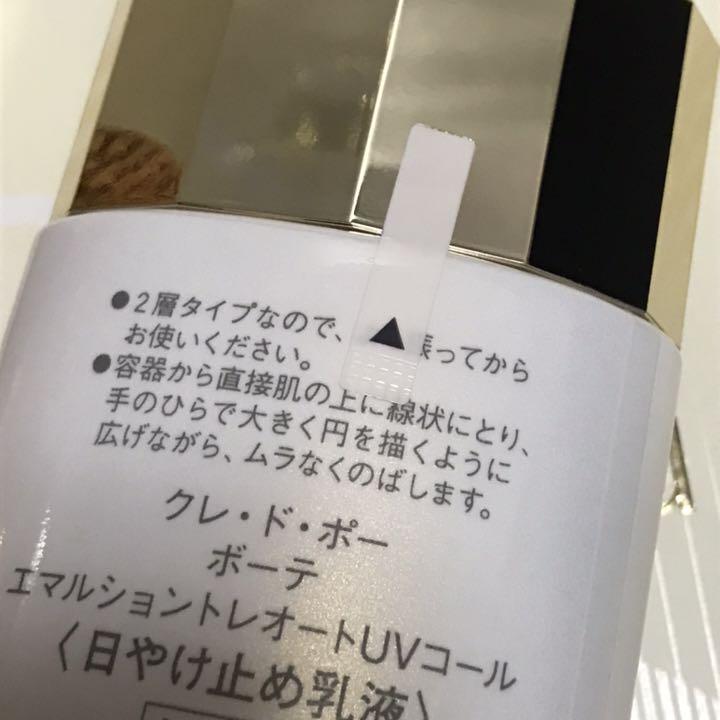 ●2層タイプなので、 振ってから
お使いください。
●容器から直接肌の上に線状にとり、
手のひらで大きく円を描くように
広げながら、ムラなくのばします。
クレ・ド・ポー
ボーテ
エマルショントレオートUVコール
〈日やけ止め乳液〉